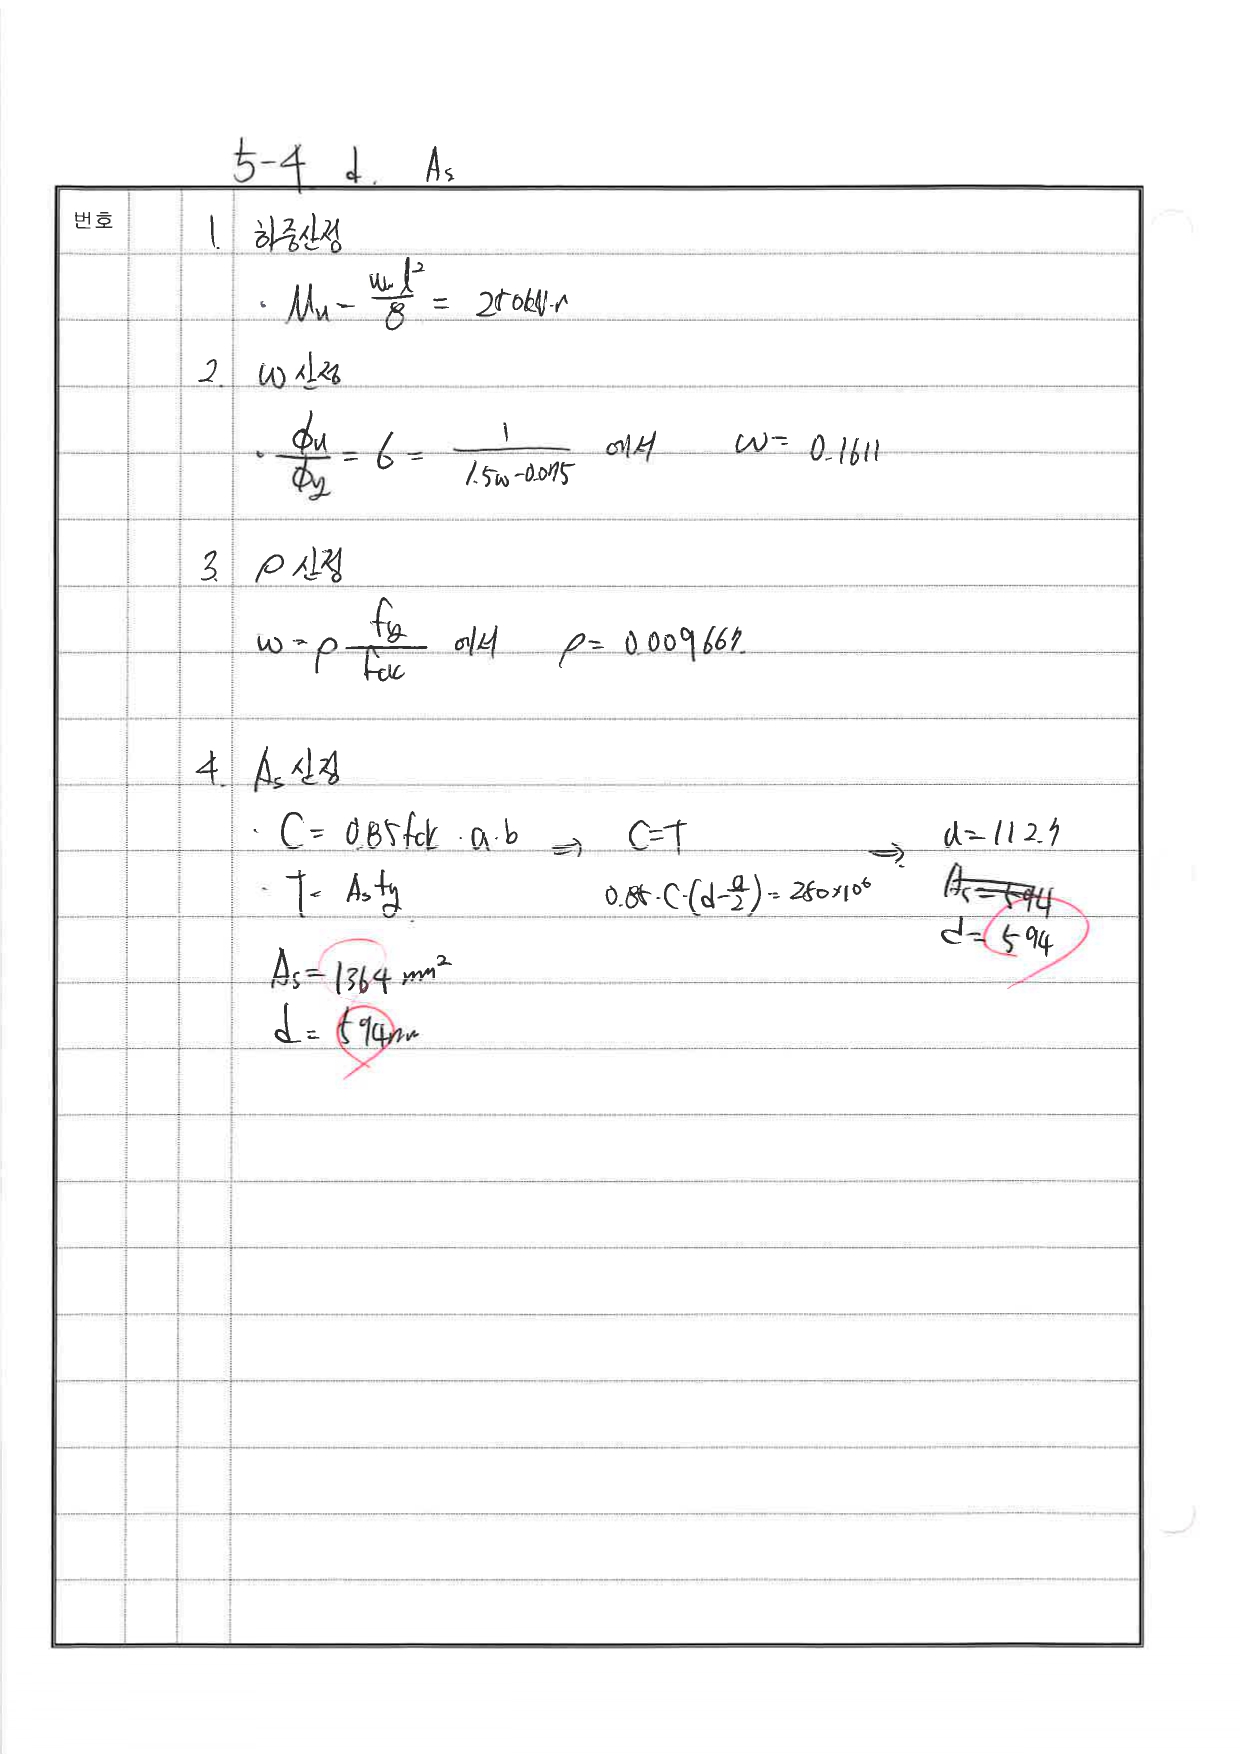 5-4 d. As
번호
1. 하중산정
· Mu = wu l² / 8 = 280kN·m
2. w 산정
· ϕu / ϕy = 6 = 1 / 1.5w-0.075 에서 w = 0.1611
3. ρ 산정
w = ρ fy / fck 에서 ρ = 0.009667
4. As 산정
· C = 0.85fck · a · b ⇒ C=T ⇒ a = 112.7
· T = As fy 0.85·C·(d-a/2) = 280×10⁶ As = 594
d = 594
As = 1364 mm²
d = 594mm